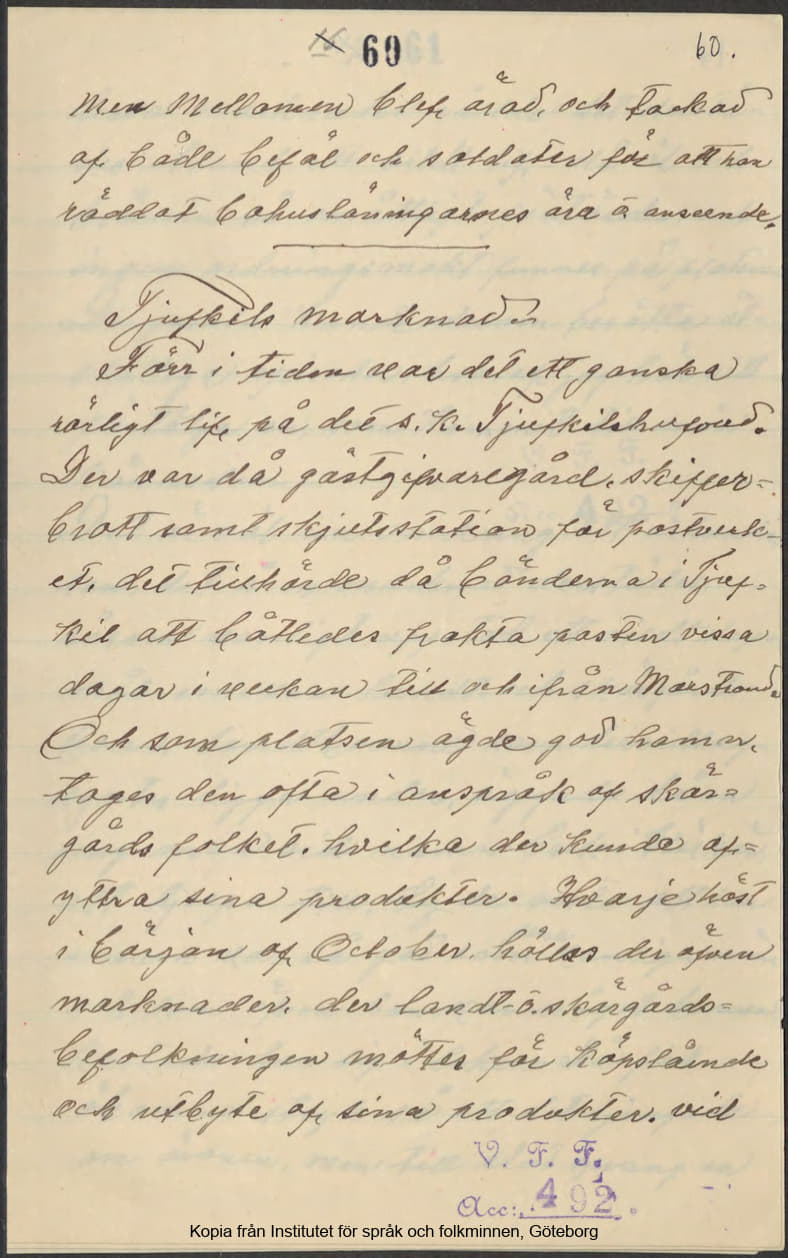 60 60.
Men Mellomen blef ärad, och tackad
af både befäl och soldater för att han
räddat bohusläningarnes ära ō anseende.
Tjufkils marknad.
Förr i tiden var det ett ganska
rörligt lif, på det s. k. Tjufkilshufvud.
Der var då gästgifvaregård, skiffer=
brott samt skjutsstation för postverk-
et, det tillhörde då bönderna i Tjuf=
kil att båtledes frakta posten vissa
dagar i veckan till och ifrån Marstrand.
Och som platsen ägde god hamn,
toges den ofta i anspråk af skär=
gårds folket. hvilka der kunde af=
yttra sina produkter. Hvarje höst
i början af October, hölls der äfven
marknader, der landt-ō. skärgårds=
befolkningen möttes för köpslående
och utbyte af sina produkter. vid
V. F. F.
Acc: 492.
Kopia från Institutet för språk och folkminnen, Göteborg